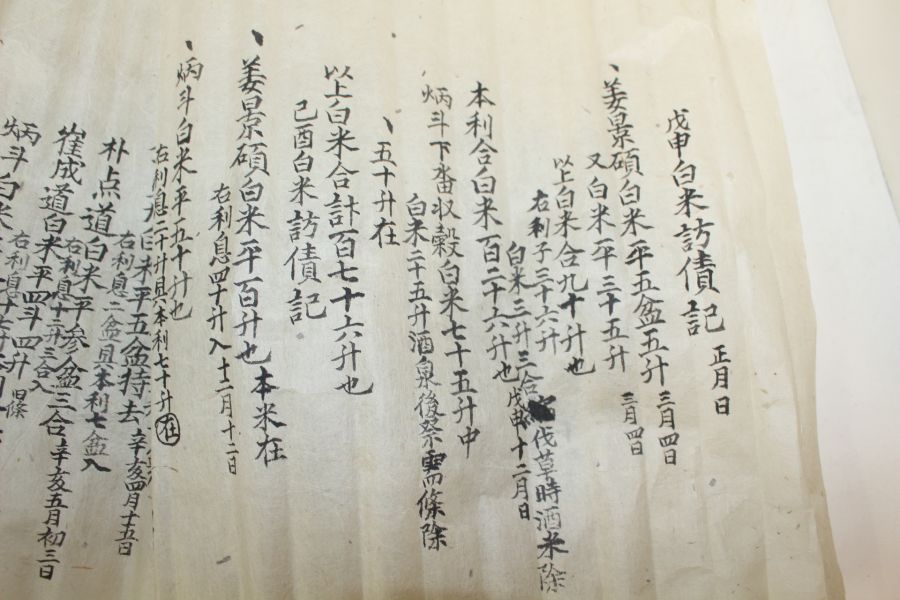 戊申白米訪債記 正月日
丶姜景碩白米平五盆五升 三月四日
又白米平三十五升 三月四日
以上白米合九十升也
右利子三十六升
白米三升三合 伐草時酒米除
本利合白米百二十六升也 戊申十二月日
炳斗下畓収穀白米七十五升中
白米二十五升酒泉後祭需條除
丶五十升在
以上白米合計百七十六升也
己酉白米訪債記
丶姜景碩白米平百升也 本米在
右利息四十升入 十二月十二日
丶炳斗白米平五十升也
右利息二十升具本利七十升在
白米平五盆持去 辛亥四月十五日
右利息二盆具本利七盆入
朴点道白米平参盆三合 辛亥五月初三日
右利息十二升三合入
崔成道白米平四斗四升
炳斗白米